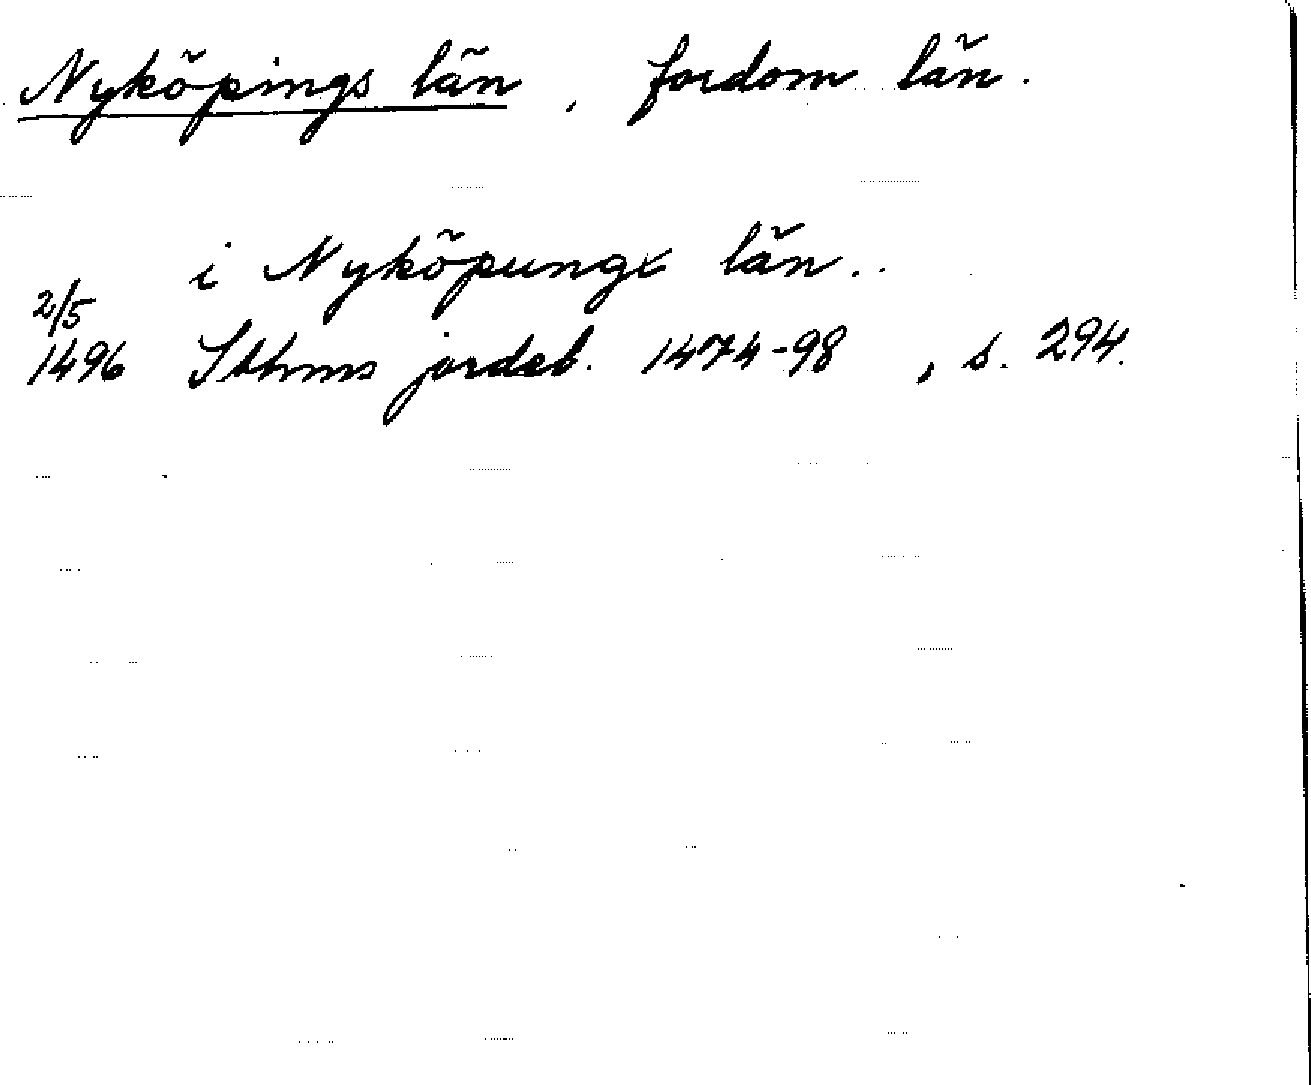 Nyköpings län, fordom län.
i Nyköpungx län..
2/5
1496 Sthms jordeb. 1474-98, s. 294.